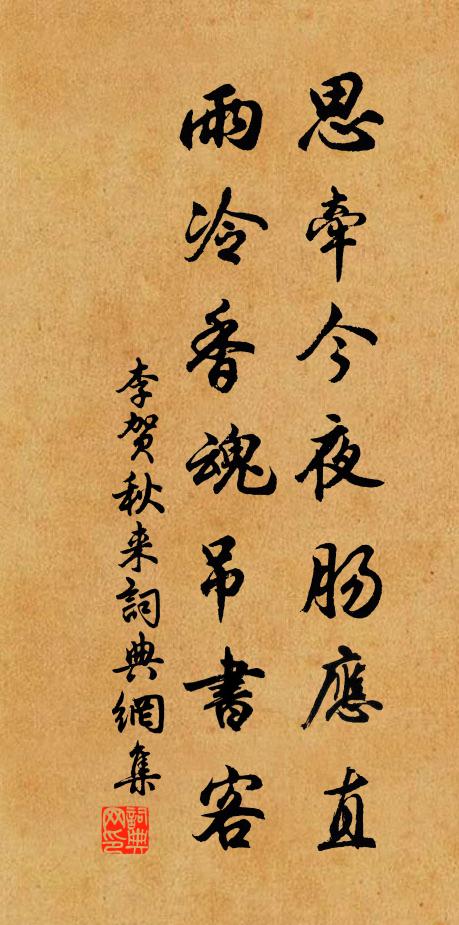 思牽今夜肠應直
雨冷香魂吊書客
李贺秋来詞典網集
詞典网印